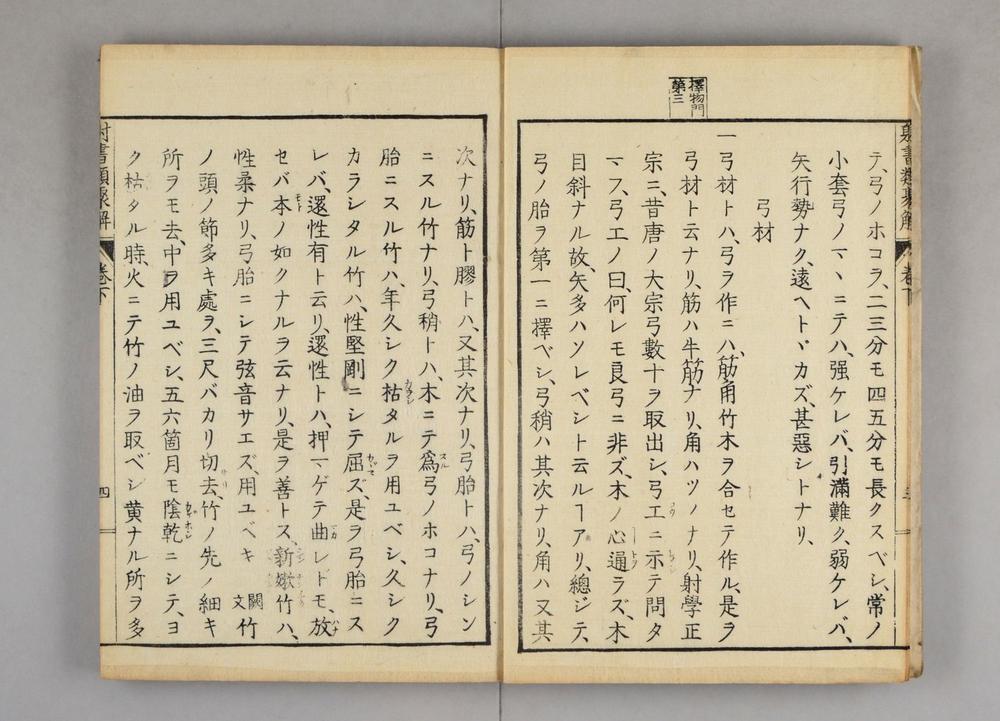 擇物門
第三
テ、弓ノホコラ、二三分モ四五分モ長クスベシ、常ノ
小套弓ノマヽニテハ、强ケレバ、引滿難ク、弱ケレバ、
矢行勢ナク、遠ヘトヾカズ、甚惡シトナリ、
弓材
一弓材トハ、弓ヲ作ニハ、筋角竹木ヲ合セテ作ル、是ヲ
弓材ト云ナリ、筋ハ牛筋ナリ、角ハツノナリ、射學正
宗ニ、昔唐ノ大宗弓數十ヲ取出シ、弓工ニ示テ問タ
マフ、弓工ノ曰、何レモ良弓ニ非ズ、木ノ心通ラズ、木
目斜ナル故、矢多ハソレベシト云ルヿアリ、總ジテ、
弓ノ胎ヲ第一ニ擇ベシ、弓稍ハ其次ナリ、角ハ又其
次ナリ、筋ト膠トハ、又其次ナリ、弓胎トハ、弓ノシン
ニスル竹ナリ、弓稍トハ、木ニテ爲弓ノホコナリ、弓
胎ニスル竹ハ、年久シク枯タルヲ用ユベシ、久シク
カラシタル竹ハ、性堅剛ニシテ屈ズ、是ヲ弓胎ニス
レバ、還性有ト云リ、還性トハ、押マゲテ曲レトモ、放
セバ本ノ如クナルヲ云ナリ、是ヲ善トス、新嫩竹ハ、
性柔ナリ、弓胎ニシテ弦音サエズ、用ユベキ 闕文 竹
ノ頭ノ節多キ處ヲ、三尺バカリ切去、竹ノ先ノ細キ
所ヲモ去、中ヲ用ユベシ、五六箇月モ陰乾ニシテ、ヨ
ク枯タル時、火ニテ竹ノ油ヲ取ベシ黄ナル所ヲ多
射書類聚解 卷下 四